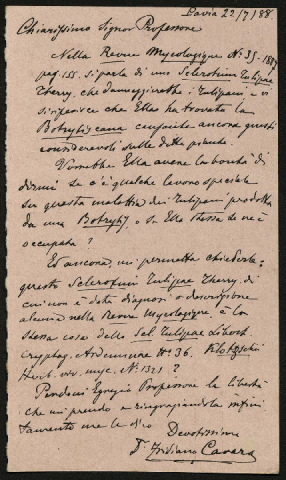 Pavia 22/7/88
Chiarissimo Signor Professore
Nella Revue Mycologique N. 35-1887
pag. 155. si parla di uno Sclerotium Tulipae
Therry, che danneggerebbe i Tulipani e
si riferisce che Ella ha trovato la
Botrytis cana causante ancora guasti
considerevoli sulle dette piante.
Vorrebbe Ella avere la bontà di
dirmi se c'è qualche lavoro speciale
su questa malattia dei Tulipani prodotta
da una Botrytis, o se Ella stessa se ne è
occupata?
Ed ancora, mi permetta chiederle:
questo Sclerotium Tulipae Therry, di
cui non è data diagnosi o descrizione
alcuna nella Revue Mycologique, è la
stessa cosa dello Scl. Tulipae Libert
Cryptog. Arduennae N. 36. Klotzschii
Herb. viv. myc. N. 1321?
Perdoni Egregio Professore la libertà
che mi prendo e ringraziandola infini
tamente me le dico
Devotissimo
Dr. Fridiano Cavara